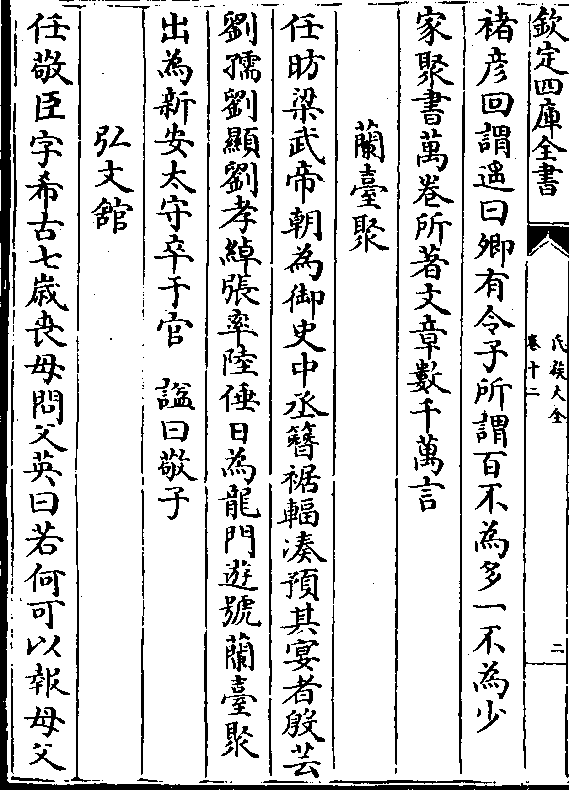 欽定四庫全書
氏族大全
卷十二
二
褚彦回謂遥曰卿有令子所謂百不為多一不為少
家聚書萬卷所著文章數千萬言
蘭臺聚
任昉梁武帝朝為御史中丞簪裾輻湊預其宴者殷芸
劉孺劉顯劉孝綽張率陸倕日為龍門遊號蘭臺聚
出為新安太守卒于官 諡曰敬子
弘文舘
任敬臣字希古七歲喪母問父英曰若何可以報母父